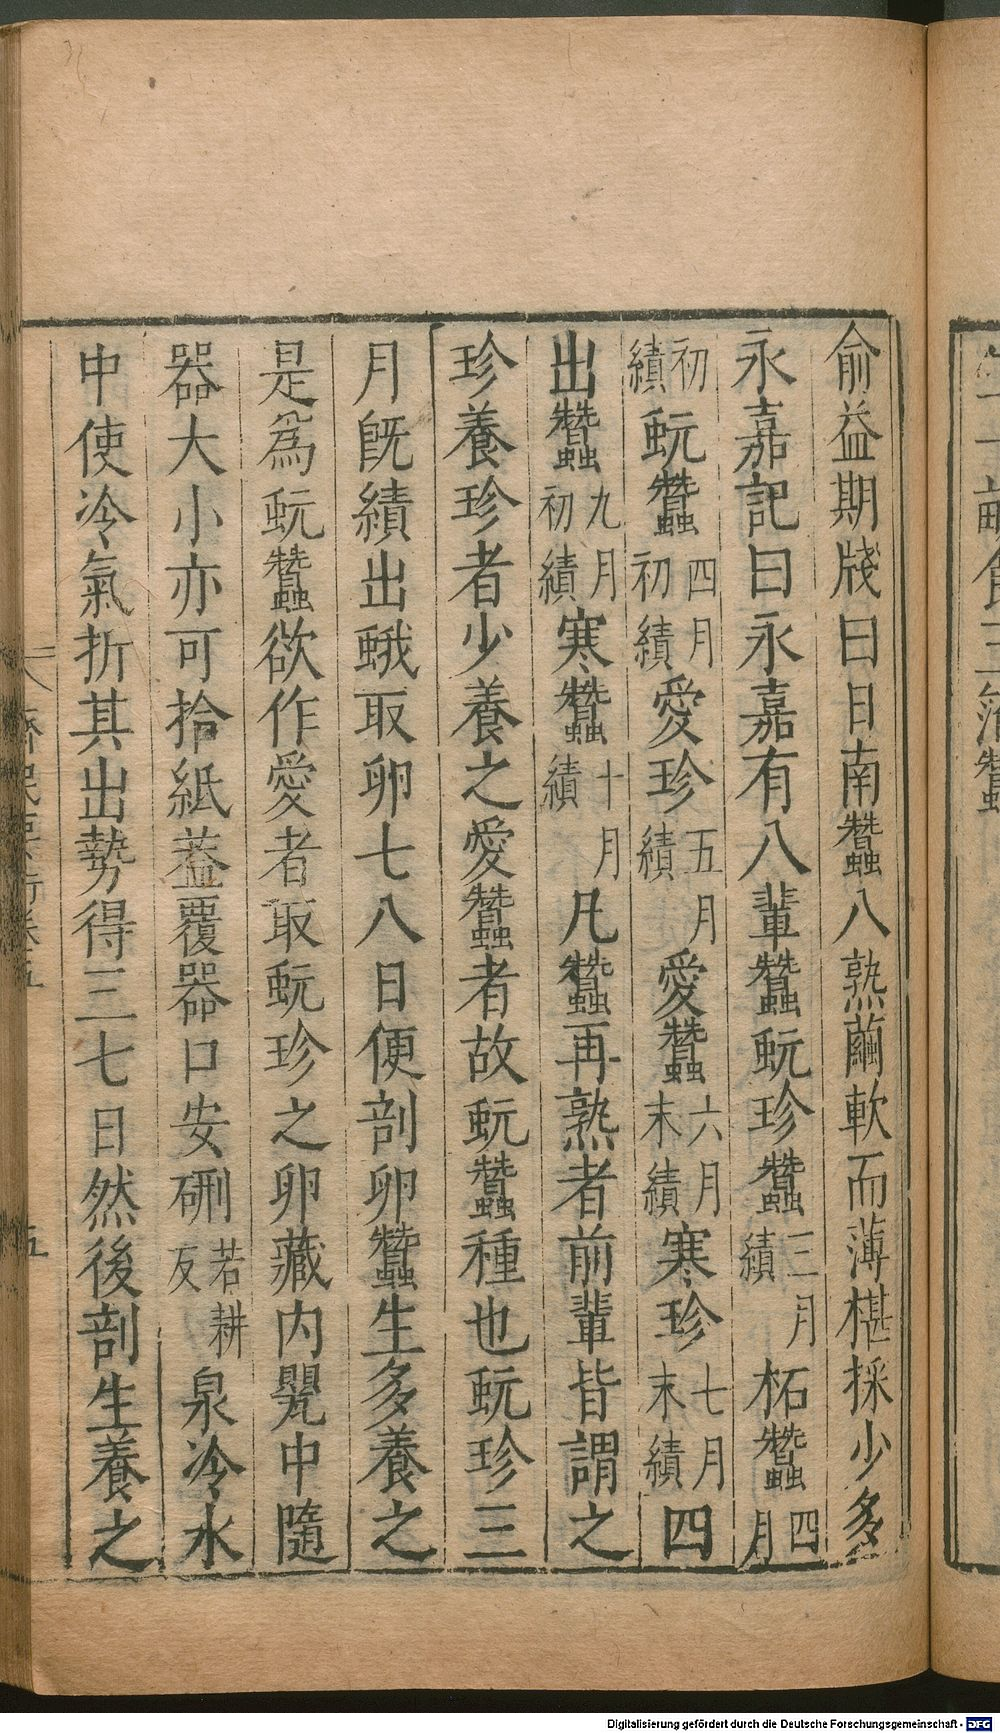 俞益期牋曰日南蠶八熟繭軟而薄椹採少多
永嘉記曰永嘉有八輩蠶蚖珍蠶三月績柘蠶四月
初績蚖蠶四月初績愛珍五月績愛蠶六月末績寒珍七月末績四
出蠶九月初績寒蠶十月績凡蠶再熟者前輩皆謂之
珍養珍者少養之愛蠶者故蚖蠶種也蚖珍三
月旣績出蛾取卵七八日便剖卵蠶生多養之
是爲蚖蠶欲作愛者取蚖珍之卵藏内甖中隨
器大小亦可拾紙蓋覆器口安硎若耕反泉冷水
中使冷氣折其出勢得三七日然後剖生養之
五
Digitalisierung gefördert durch die Deutsche Forschungsgemeinschaft - DFG